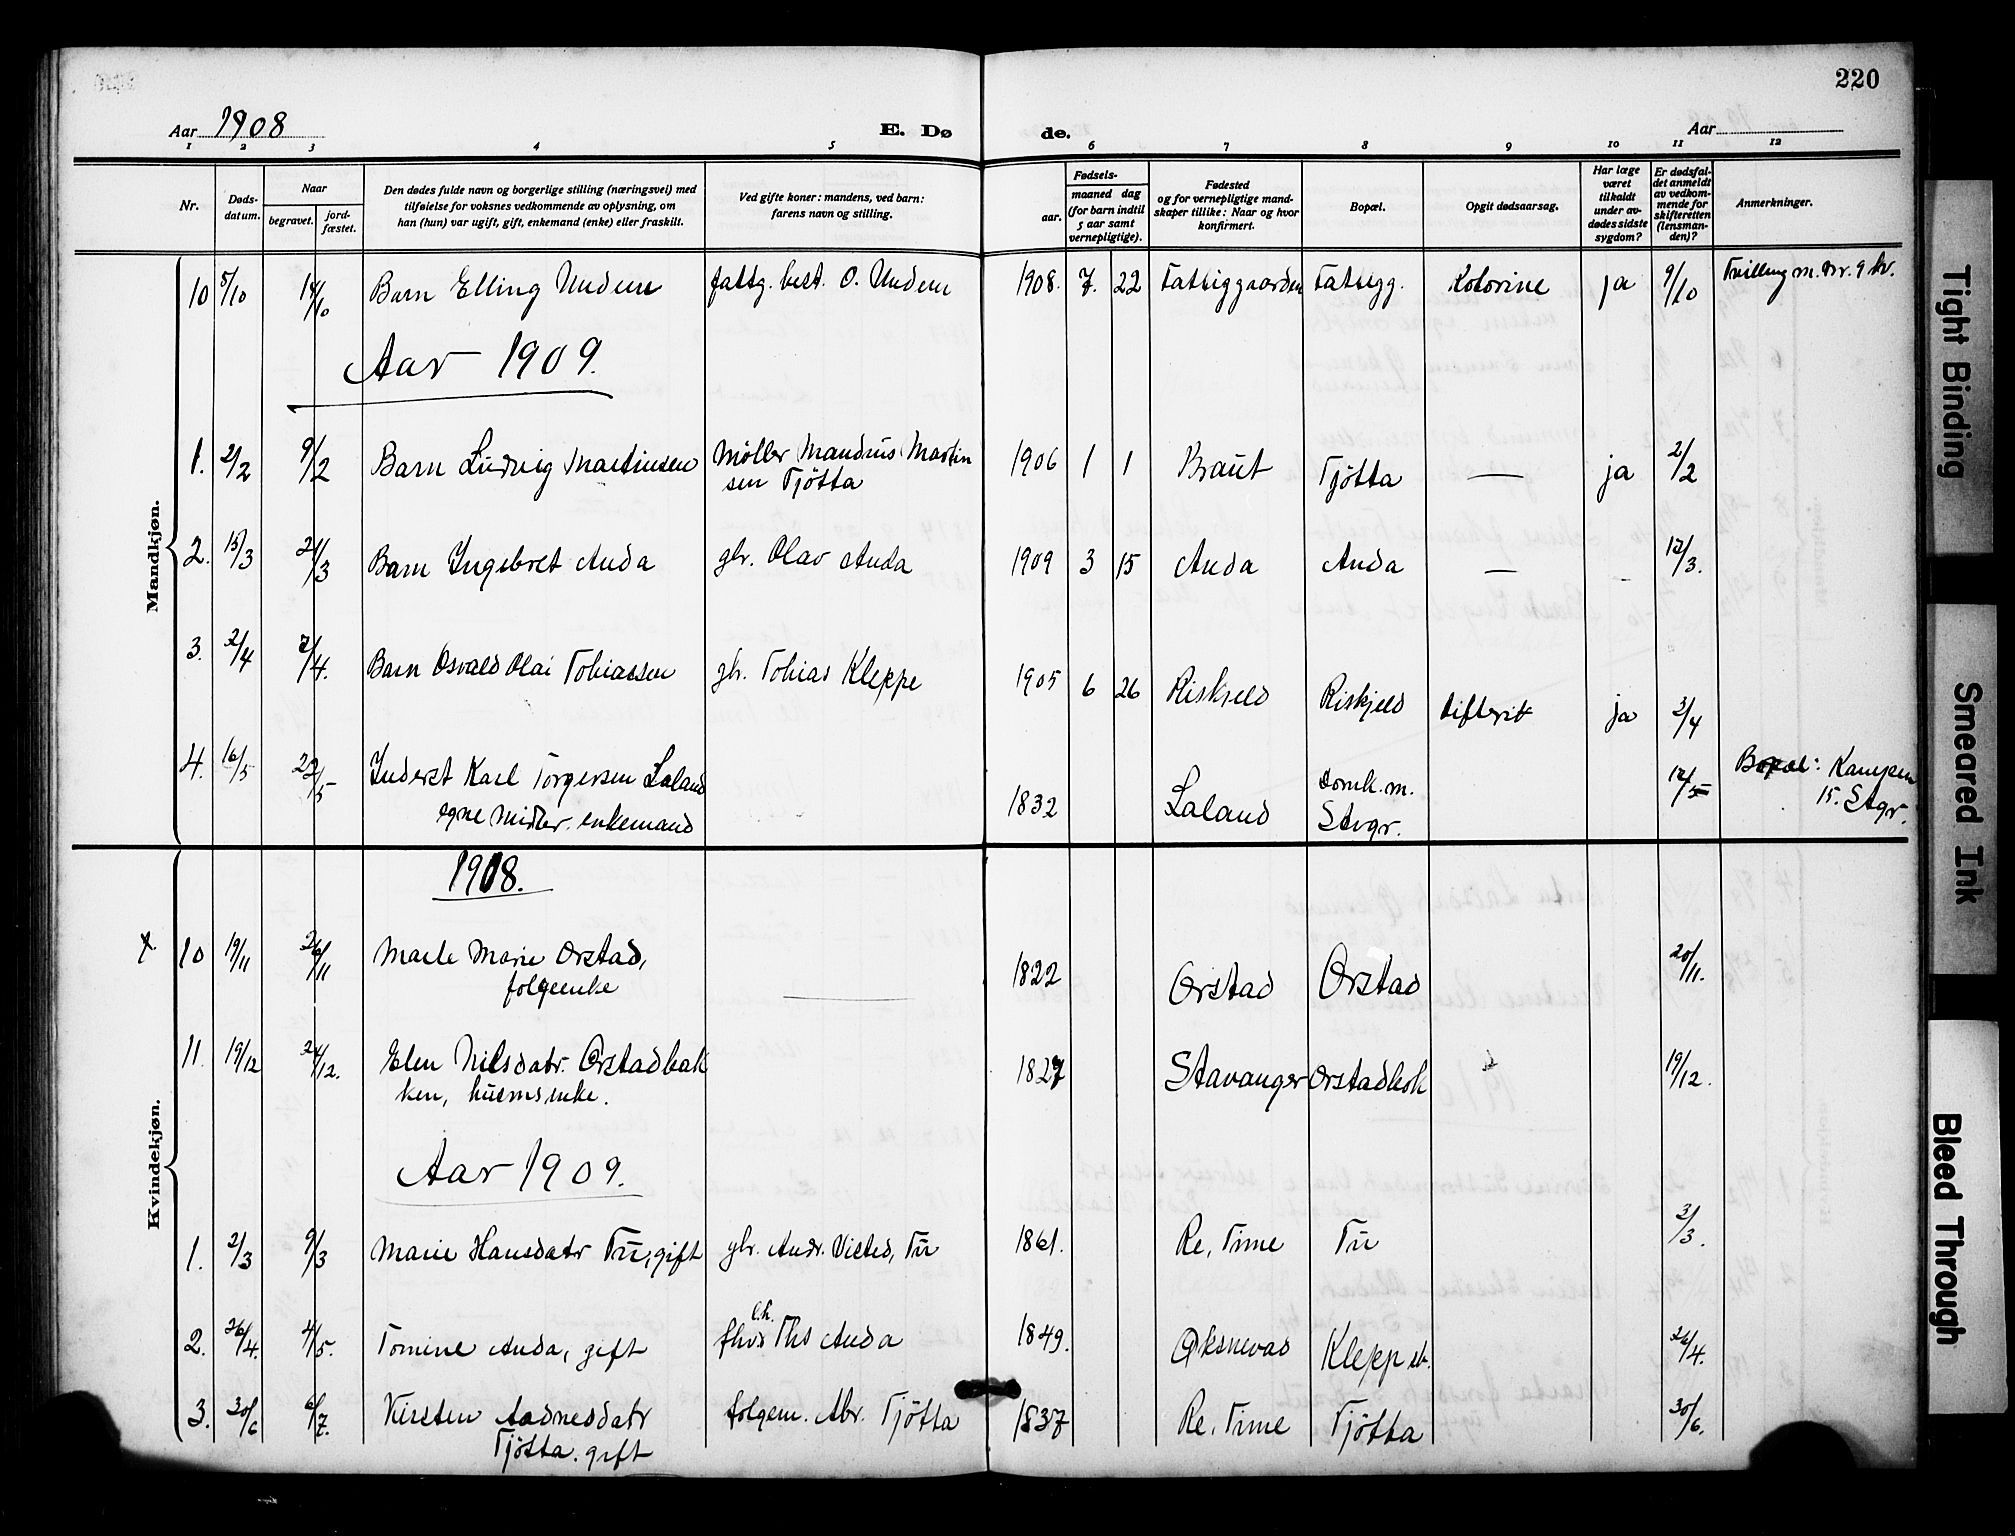 220
Aar 1908 E. Dø de. Aar
1 2 3 4 5 6 7 8 9 10 11 12
Nr. Døds-datum. Naar begravet. jord-fæstet. Den dødes fulde navn og borgerlige stilling (næringsvei) med tilføielse for voksnes vedkommende av oplysning, om han (hun) var ugift, gift, enkemand (enke) eller fraskilt. Ved gifte koner: mandens, ved barn: farens navn og stilling. Fødsels- aar. maaned dag (for barn indtil 5 aar samt vernepligtige). Fødested og for vernepligtige mand-skaper tillike: Naar og hvor konfirmert. Bopæl. Opgit dødsaarsag. Har læge været tilkaldt under av-dødes sidste sygdom? Er dødsfal-det anmeldt av vedkom-mende for skifteretten (lensman-den)? Anmerkninger.
Mandkjøn.
10 5/10 14/10 Barn Elling Undem fattg. best. O. Undem 1908. 7. 22 Fattiggaarden Fattigg. Kolorine ja 9/10 Tvilling m. nr. 9 kv.
Aar 1909.
1. 2/2 9/2 Barn Ludvig Martinsen Møller Mandrus Martin 1906 1 1 Braut Tjøtta — ja 2/2
sen Tjøtta
2. 15/3 21/3 Barn Ingebret Anda gbr. Olav Anda 1909 3 15 Anda Anda — - 17/3.
3. 2/4 7/4. Barn Osvald Olai Tobiassen gbr. Tobias Kleppe 1905 6 26 Riskjeld Riskjeld difterit ja 3/4
4. 16/5 22/5 Inderst Karl Torgersen Laland 1832 Laland domk. m. 17/5 Bopæl: Kampen
egne midler. enkemand Stvgr. 15. Stgr.
Kvindekjøn.
1908.
x 10 19/11 26/11 Marte Marie Orstad, 1822 Orstad Orstad 20/11.
folgeenke —
11. 19/12 24/12. Elen Nilsdatr. Orstadbak 1827 Stavanger Orstadbak 19/12.
ken, husmsenke.
Aar 1909.
1. 2/3 9/3 Marie Hansdatr Tu, gift gbr. Andr. Visted, Tu 1861. Re, Time Tu 3/3.
2. 26/4. 4/5. Tomine Anda, gift fhvs l.h. Ths Anda 1849. Øksnevad Klepp st. 26/4.
3. 30/6 6/7. Kirsten Aadnesdatr folgem. Abr. Tjøtta 1837 Re, Time Tjøtta 30/6.
Tjøtta. gift
Tight Binding
Smeared Ink
Bleed Through